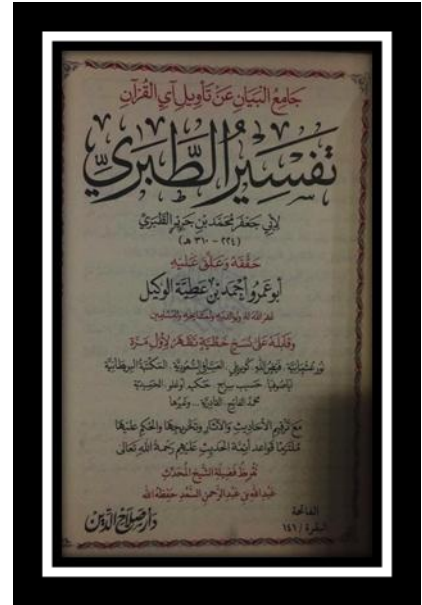 جَامِعُ البَيَانِ عَنْ تَأْوِيلِ آيِ القُرْآنِ
تَفْسِيرُ الطَّبَرِيّ
لِأَبِي جَعْفَر مُحَمَّد بْنِ جَرِيرٍ الطَّبَرِيّ
(٢٢٤ - ٣١٠ هـ)
حَقَّقَهُ وَعَلَّقَ عَلَيْهِ
أبو عمرو أحمد بن عطية الوكيل
غفر الله له ولوالديه ولمشايخه وللمسلمين
وقابله على نسخ خطية تظهر لأول مرة
نور عثمانية، فيض الله، كوبريلي، السعودية، المكتبة البريطانية
آياصوفيا، حسيب سراج، حكيم أوغلو، الحميدية
محمد الفاتح، القادرية ... وغيرها
مع ترقيم الأحاديث والآثار وتخريجها والحكم عليها
ملتزما قواعد أئمة الحديث عليهم رحمة الله تعالى
تقريظ فضيلة الشيخ المحدث
عبد الله بن عبد الرحمن السعد حفظه الله
الفاتحة
البقرة / ١٤١
دار صلاح الدين